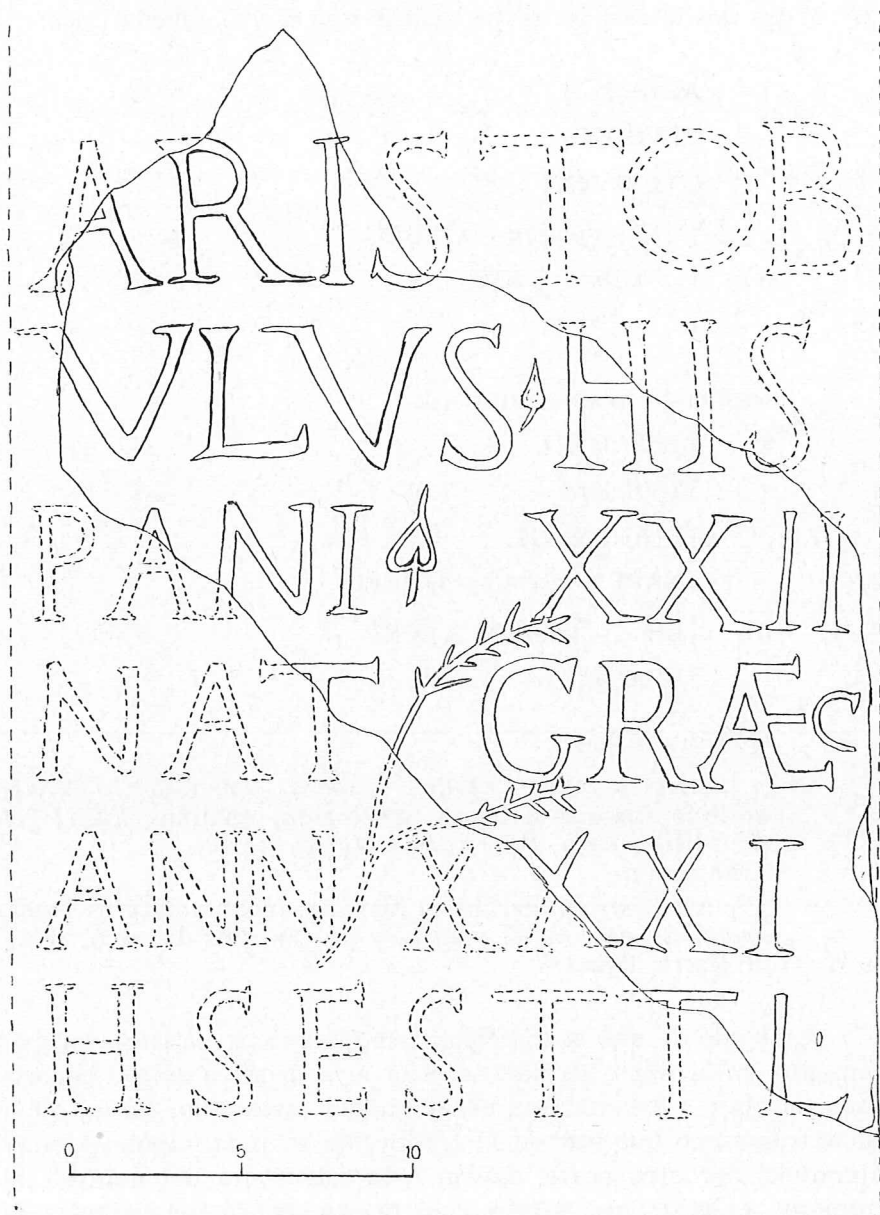 ARISTOB
VLVS HIS
PANI XXII
NAT GRÆC
ANN XXXI
H S EST T L
0 5 10